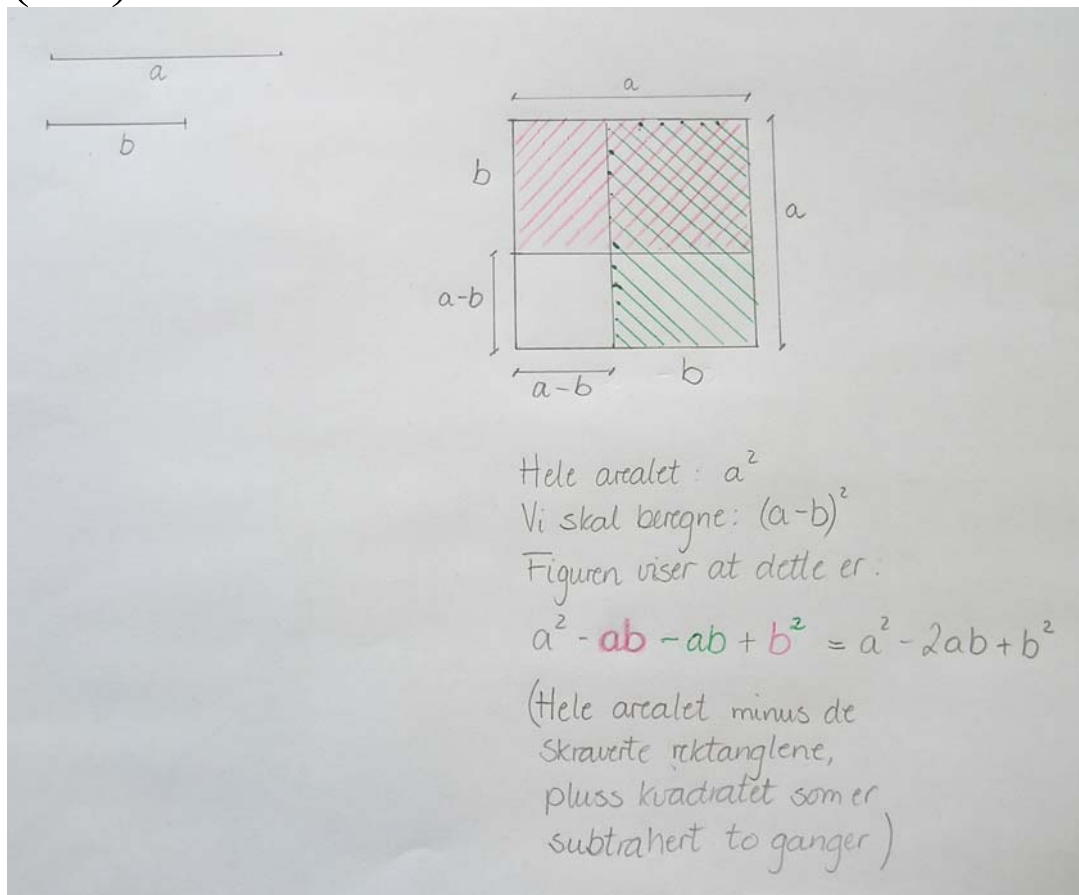 a
b
a
b
a
a-b
a-b
b
Hele arealet: a²
Vi skal beregne: (a-b)²
Figuren viser at dette er:
a² - ab - ab + b² = a² - 2ab + b²
(Hele arealet minus de
skraverte rektanglene,
pluss kvadratet som er
subtrahert to ganger)